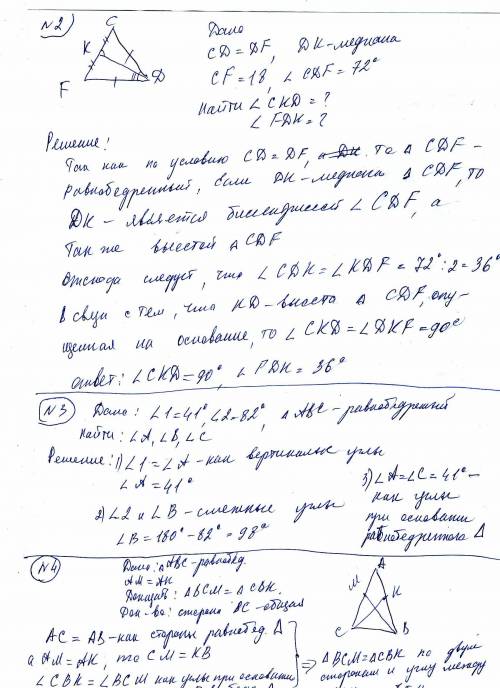 N2)
C
K
F
D
Дано
CD=DF, DK-медиана
CF=18, ∠CDF=72°
Найти ∠CKD=?
∠FDK=?
Решение:
Так как по условию CD=DF, то △CDF-
равнобедренный, если DK-медиана △CDF, то
DK-является биссектрисой ∠CDF, а
так же высотой △CDF
отсюда следует, что ∠CDK=∠KDF=72°:2=36°
В связи с тем, что KD-высота △CDF, опу-
щенная на основание, то ∠CKD=∠DKF=90°
ответ: ∠CKD=90°, ∠FDK=36°
N3
Дано: ∠1=41°, ∠2=82°, △ABC-равнобедренный
Найти: ∠A, ∠B, ∠C
Решение: 1) ∠1=∠A-как вертикальные углы
∠A=41°
2) ∠2 и ∠B-смежные углы
∠B=180°-82°=98°
3) ∠A=∠C=41°-
как углы
при основании
равнобедренного △
N4
Дано: △ABC-равнобед.
AM=AK
Доказать: △BCM=△CBK.
Док-во: сторона BC-общая
AC=AB-как стороны равнобед. △
а AM=AK, то CM=KB
∠CBK=∠BCM как углы при основании
A
M
K
C
B
⇒ △BCM=△CBK по двум
сторонам и углу между